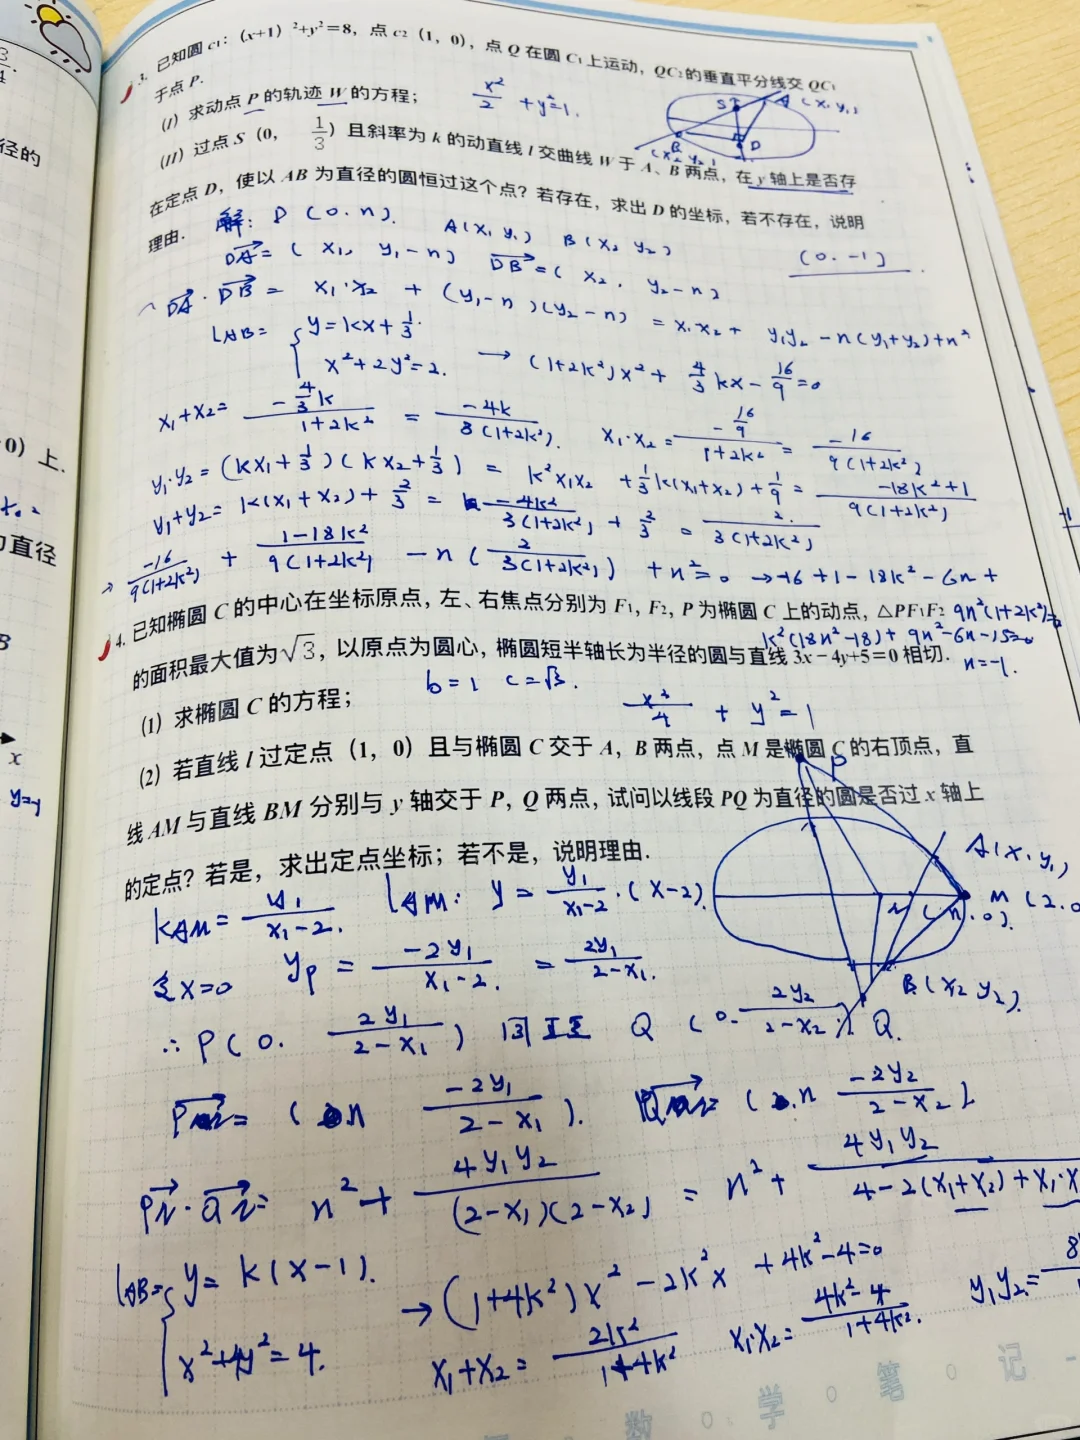 3. 已知圆 c₁: (x+1)²+y²=8, 点 c₂ (1, 0), 点 Q 在圆 C₁ 上运动, QC₂的垂直平分线交 QC₁
于点 P.
(I) 求动点 P 的轨迹 W 的方程;
x²/2 + y²=1.
(II) 过点 S (0, 1/3) 且斜率为 k 的动直线 l 交曲线 W 于 A、B 两点, 在 y 轴上是否存
在定点 D, 使以 AB 为直径的圆恒过这个点? 若存在, 求出 D 的坐标, 若不存在, 说明
理由.
(0. -1)
解: D (0. n). A(x₁ y₁) B(x₂ y₂)
DA = ( x₁, y₁-n) DB = ( x₂, y₂-n)
DA · DB = x₁·x₂ + (y₁-n)(y₂-n) = x₁x₂ + y₁y₂ -n(y₁+y₂)+n²
lAB= { y=kx+1/3.
x²+2y²=2. → (1+2k²)x² + 4/3 kx - 16/9 =0
x₁+x₂= -4/3 k / 1+2k² = -4k / 3(1+2k²). x₁·x₂ = -16/9 / 1+2k² = -16 / 9(1+2k²)
y₁·y₂ = (kx₁+1/3)(kx₂+1/3) = k²x₁x₂ + 1/3 k(x₁+x₂)+1/9 = -18k²+1 / 9(1+2k²)
y₁+y₂= k(x₁+x₂)+2/3 = -4k² / 3(1+2k²) + 2/3 = 2 / 3(1+2k²)
-16 / 9(1+2k²) + 1-18k² / 9(1+2k²) - n( 2 / 3(1+2k²) ) + n²=0 → -16+1-18k²-6n+
9n²(1+2k²)=0
k²(18n²-18)+9n²-6n-15=0
n=-1.
4. 已知椭圆 C 的中心在坐标原点, 左、右焦点分别为 F₁, F₂, P 为椭圆 C 上的动点, △PF₁F₂
的面积最大值为√3, 以原点为圆心, 椭圆短半轴长为半径的圆与直线 3x-4y+5=0 相切.
(1) 求椭圆 C 的方程;
b=1 c=√3.
x²/4 + y²=1
(2) 若直线 l 过定点 (1, 0) 且与椭圆 C 交于 A, B 两点, 点 M 是椭圆 C 的右顶点, 直
线 AM 与直线 BM 分别与 y 轴交于 P, Q 两点, 试问以线段 PQ 为直径的圆是否过 x 轴上
的定点? 若是, 求出定点坐标; 若不是, 说明理由.
kAM= y₁ / x₁-2. lAM: y = y₁ / x₁-2 ·(x-2).
令x=0 yP = -2y₁ / x₁-2. = 2y₁ / 2-x₁.
∴ P(0. 2y₁ / 2-x₁) 同理 Q (0. 2y₂ / 2-x₂)
PN= ( n -2y₁ / 2-x₁ ). QN= ( n -2y₂ / 2-x₂ )
PN·QN= n²+ 4y₁y₂ / (2-x₁)(2-x₂) = n²+ 4y₁y₂ / 4-2(x₁+x₂)+x₁·x
lAB= { y= k(x-1).
x²+4y²=4. → (1+4k²)x²-2k²x +4k²-4=0
x₁+x₂ = 2k² / 1+4k² x₁·x₂= 4k²-4 / 1+4k². y₁y₂= 8
S
A (x₁ y₁)
B
(x₂ y₂)
D
P
A(x₁ y₁)
M (2.0
N (n.0).
B(x₂ y₂).
Q.
数 学 笔 记
径的
0) 上.
直径
x